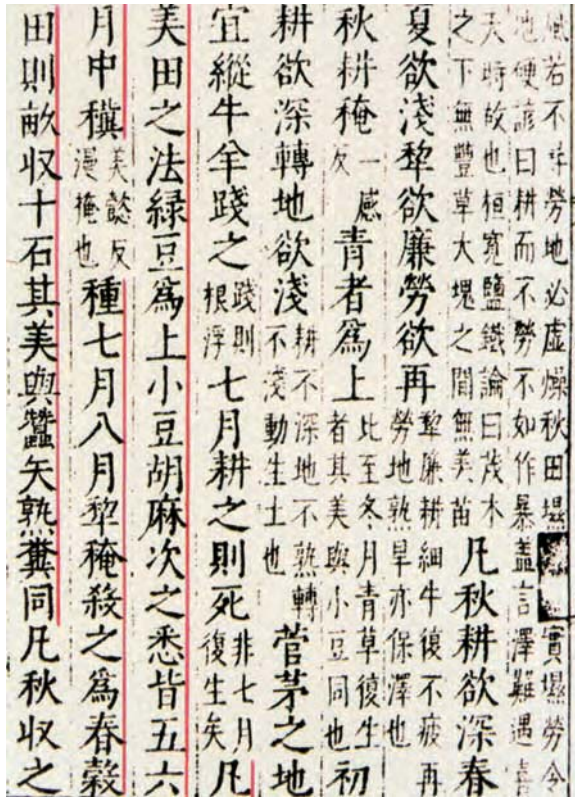 風若不尋勞地必虛燥秋田㙷實㙷勞令
地硬諺曰耕而不勞不如作暴蓋言澤難遇喜
天時故也桓寬鹽鐵論曰茂木之下無豐草大塊之間無美苗凡秋耕欲深春
夏欲淺犁欲廉勞欲再犁廉耕細牛復不疲再勞地熟旱亦保澤也
秋耕䅖一感反青者爲上比至冬月青草復生者其美與小豆同也初
耕欲深轉地欲淺耕不深地不熟轉不淺動生土也菅茅之地
宜縱牛羊踐之踐則根浮七月耕之則死非七月復生矣凡
美田之法緑豆爲上小豆胡麻次之悉皆五六
月中美懿反漫掩也種七月八月犁䅖殺之爲春穀
田則畝収十石其美與蠶矢熟糞同凡秋収之